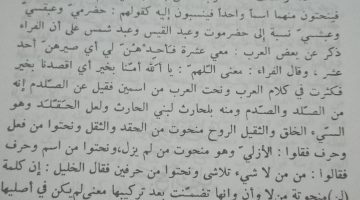 فينحتون منهما اسماً واحداً فينسبون إليه كقولهم : حضرمي وعبقسي
وعبشمي نسبة إلى حضرموت وعبد القيس وعبد شمس على أن الفراء
ذكر عن بعض العرب : معي عشرة فأحدهنّ لي أي صيرهن أحد
عشر ، وقال الفراء : معنى اللهم : يا ألله أمنا بخير أي اقصدنا بخير
فكثرت في كلام العرب ونحت العرب من اسمين فقيل عن الصلدم إنه
من الصلد والصدم ومنه بلحارث لبني الحارث ولعل الحقلد وهو
السيء الخلق والثقيل الروح منحوت من الحقد والثقل ونحتوا من فعل
وحرف فقالوا : الأزلي وهو منحوت من لم يزل، ونحتوا من اسم وحرف
فقالوا : من من لا شيء تلاشى ونحتوا من حرفين فقال الخليل : إن كلمة
(لن) منحوتة من لا وأن وانها تضمنت بعد تركيبها معنى لم يكن في أصليها